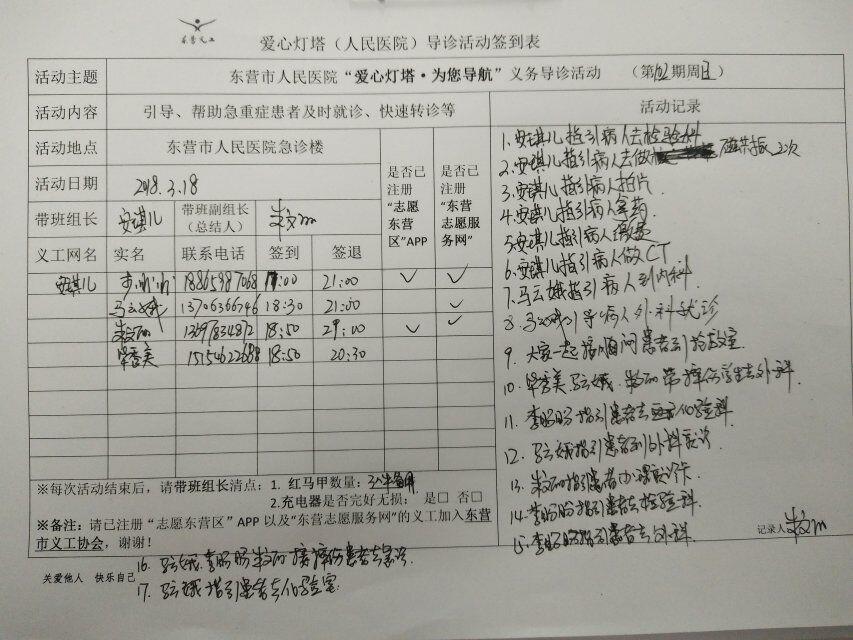 东营义工
爱心灯塔（人民医院）导诊活动签到表
活动主题 东营市人民医院“爱心灯塔·为您导航”义务导诊活动 （第 期周日）
活动内容 引导、帮助急重症患者及时就诊、快速转诊等 活动记录
活动地点 东营市人民医院急诊楼 是否已注册“志愿东营区”APP 是否已注册“东营志愿服务网”
活动日期 2018.3.18
带班组长 安琪儿 带班副组长（总结人）
义工网名 实名 联系电话 签到 签退
安琪儿 18865987068 17:00 21:00 ✓ ✓
马云娥 13706366746 18:30 21:00 ✓
18:50 21:00 ✓ ✓
毕秀美 15154622688 18:50 20:30
1. 安琪儿指引病人去检验科
2. 安琪儿指引病人去做 磁共振 2次
3. 安琪儿指引病人拍片
4. 安琪儿指引病人拿药
5. 安琪儿指引病人缴费
6. 安琪儿指引病人做CT
7. 马云娥指引病人到内科
8. 马云娥引导病人外科就诊
9. 大家一起 患者到抢救室
10. 毕秀美. 马云娥. 学生去外科.
11. 李盼盼指引患者去 化验科.
12. 马云娥指引患者到外科就诊
13. 指引患者办理就诊卡
14. 李盼盼指引患者去检验科.
15. 李盼盼指引患者去外科.
记录人
※每次活动结束后，请带班组长清点：1. 红马甲数量：
2.充电器是否完好无损： 是□ 否□
※备注：请已注册“志愿东营区”APP 以及“东营志愿服务网”的义工加入东营
市义工协会，谢谢！
16. 马云娥. 李盼盼 患者去急诊
关爱他人 快乐自己
17. 马云娥指引患者去化验室